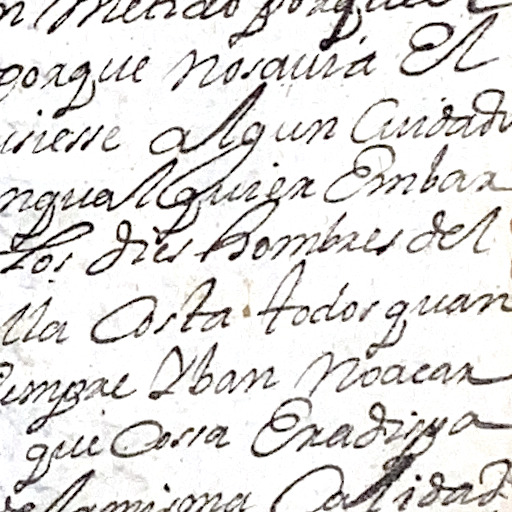 n metido porque
porque nosavia El
usiesse algun Cuidad
nqualquier Embar
Los dies hombres del
lla Costa todos quan
iempre Yban Noacar
qui Cossa Era digna
de la misma Calidad